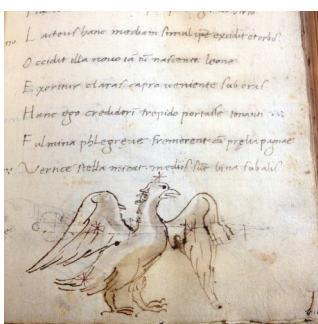 L acteus hanc mediam simul ipe excidit et orbis
O ccidit illa nouo iā nascente leone
E xoritur claras capro ueniente sub oras
H anc ego trepido portasse tonanti
F ulmina phlegreae fremerent cū prelia pugnae
V ertice stella micat mediis sūt bina sub alis